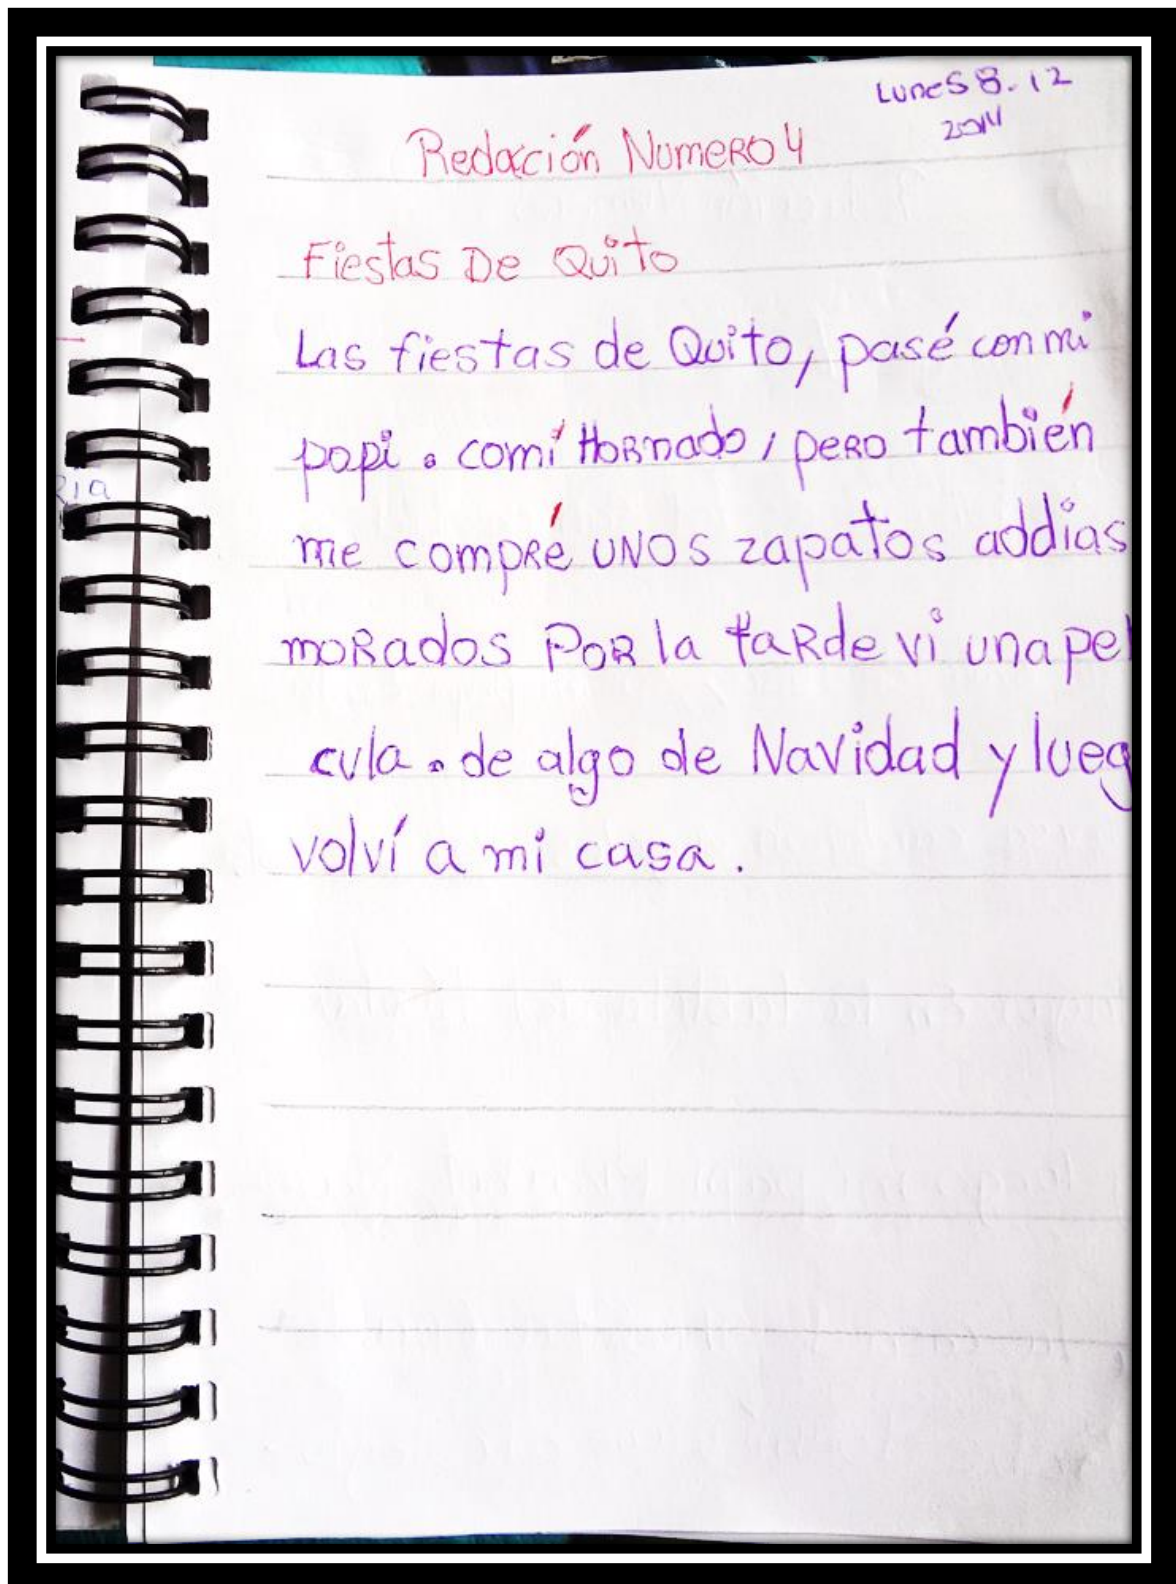 Lunes 8.12
2014
Redacción Numero 4
Fiestas De Quito
Las fiestas de Quito, pasé con mi
papi. comí Hornado, pero también
me compré UNOS zapatos addias
moRados PoR la taRde vi una pel
cula. de algo de Navidad y lueg
volví a mi casa.
RIA